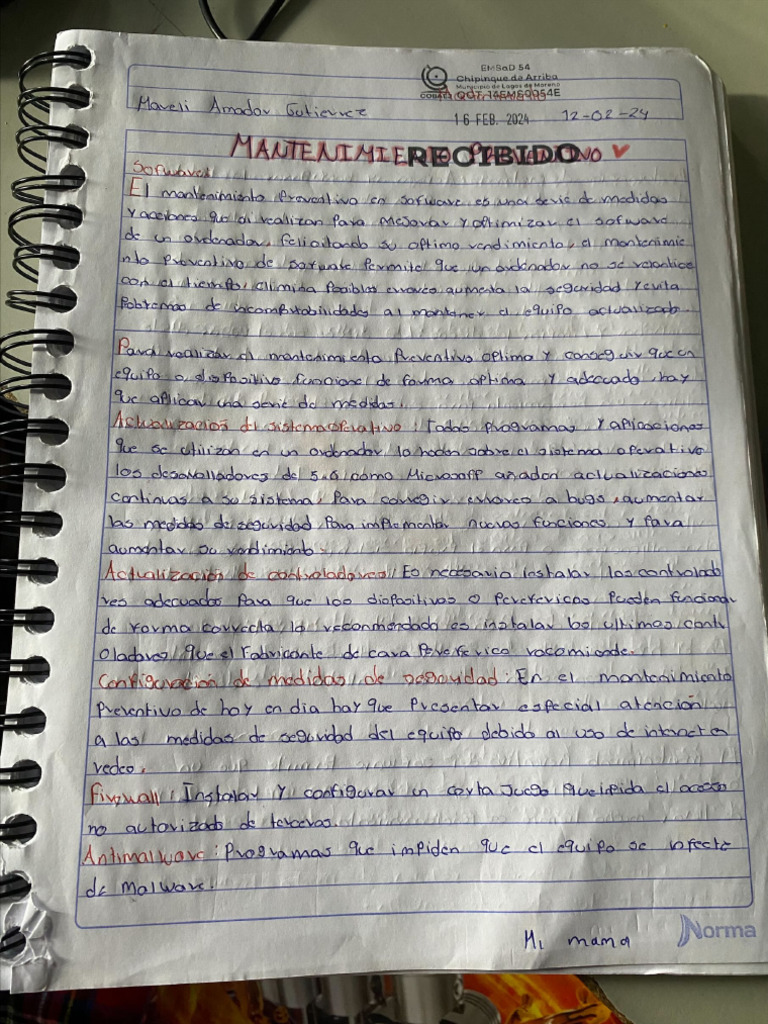 EMSaD 54
Chipinque de Arriba
Municipio de Lagos de Moreno
14EMS0054E
Mareli Amador Gutierrez 16 FEB. 2024 12-02-24
MANTENIMIENTO PREVENTIVO
RECIBIDO
Sofware:
El mantenimiento preventivo en software es una serie de medidas
y aciones que se realizan para mejorar y optimizar el sofware
de un ordenador, felicitando su optimo rendimiento, el mantenimie
nto preventivo de software permite que un ordenador no se ralentice
con el tiempo, elimina posibles errores aumenta la seguridad y evita
poblemas de incompatabilidades al mantener el equipo actualizado.
Para realizar el mantenimiento preventivo optimo y conseguir que un
equipo o dispositivo funcione de forma optima y adecuado, hay
que aplicar una serie de medidas.
Actualización del sistema operativo: Todos programas y aplicaciones
que se utilizan en un ordenador, lo hacen sobre el sistema operativo
los desarolladores de S.O como Microsoft añaden actualizaciones
continuas a su sistema para corregir errores a bugs, aumentar
las medidas de seguridad para implementar nuevas funciones y para
aumentar su rendimiento.
Actualización de controladores: Es necesario instalar los controlad
res adecuados para que los dispositivos o perefericos pueden funcionar
de forma correcta, lo recommendado es instalar los ultimos contr
oladores que el fabricante de cara pereferico recomiende.
Configuración de medidas de seguridad: En el mantenimiento
preventivo de hoy en dia hay que presentar especial atención
a las medidas de seguridad del equipo debido al uso de internet en
redes.
Firewall: Instalar y configurar un corta Juego que impida el acceso
no autorizado de terceros.
Antimalware: Programas que impiden que el equipo se infecte
de malware.
Mi mama
Norma